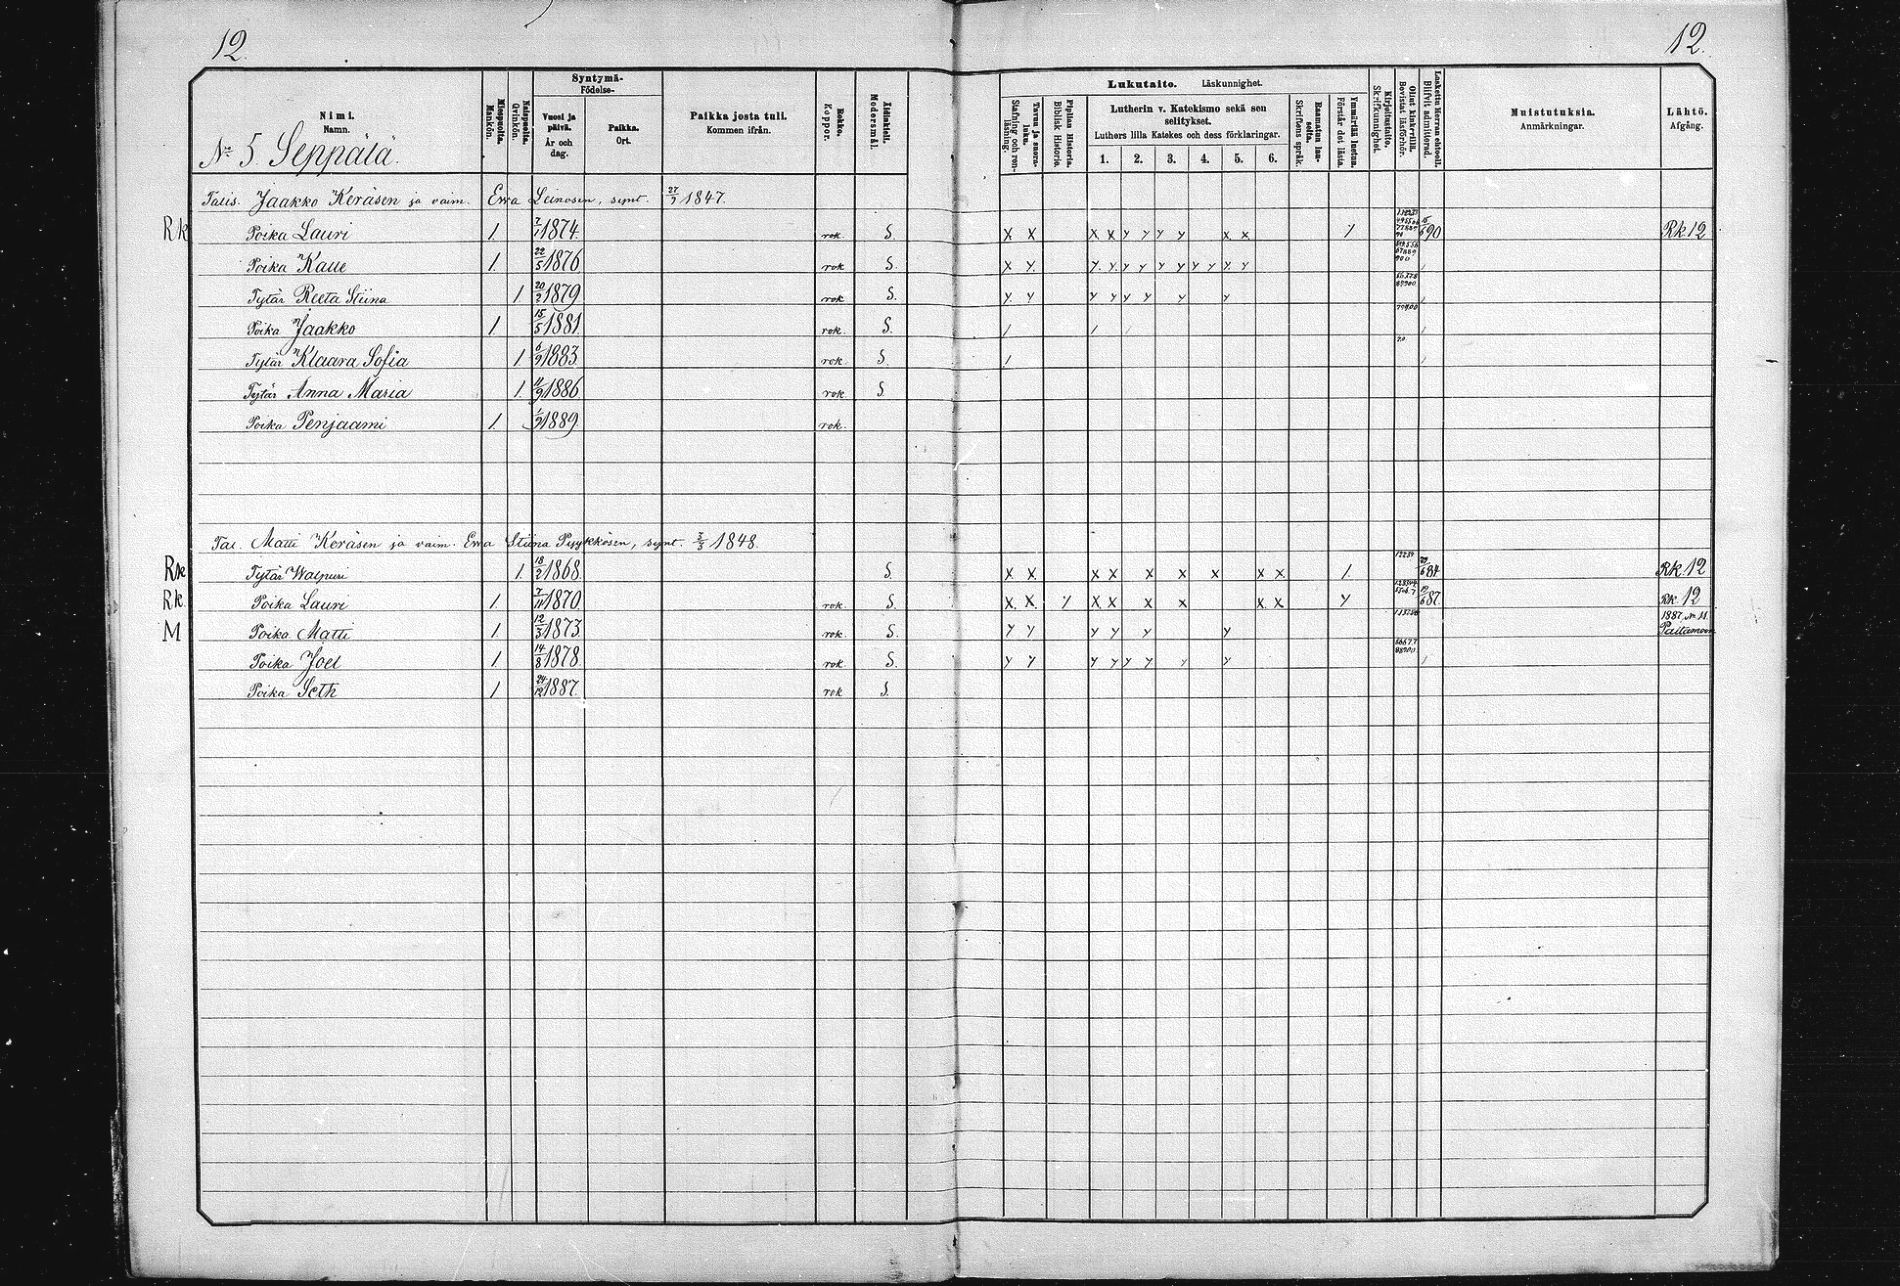 12.
12.
Nimi.
Namn.
Miespuolta.
Mankön.
Naispuolta.
Qvinkön.
Syntymä-
Födelse-
Vuosi ja päivä.
År och dag.
Paikka.
Ort.
Paikka josta tuli.
Kommen ifrån.
Rokko.
Koppor.
Äidinkieli.
Modersmål.
Lukutaito. Läskunnighet.
Tavuu ja suora-luku.
Stafning och ren-läsning.
Piplian Historia.
Biblisk Historia.
Lutherin v. Katekismo sekä sen selitykset.
Luthers lilla Katekes och dess förklaringar.
1. 2. 3. 4. 5. 6.
Raamatun lau-seita.
Skriftens språk.
Ymmärtää luetun.
Förstår det lästa.
Kirjoitustaito.
Skrifkunnighet.
Ollut kinkerillä.
Bevistat läsförhör.
Laskettu Herran ehtooll.
Blifvit admitterad.
Muistutuksia.
Anmärkningar.
Lähtö.
Afgång.
No 5. Seppälä.
Talis. Jaakko Keräsen ja vaim. Ewa Leinosen, synt. 27/7 1847.
Rk Poika Lauri 1. 7/1 1874. rok. S. x x x x y y y y x x y 15/6 90 Rk 12
Poika Kalle 1. 22/5 1876 rok S. x y. y. y. y y y y y y y. y
Tytär Reeta Stiina 1. 20/2 1879 rok S. y. y y y y y y y
Poika Jaakko 1 15/5 1881. rok. S. / /
Tytär Klaara Sofia 1. 6/9 1883 rok. S. /
Tytär Anna Maria 1. 11/9 1886 rok. S.
Poika Penjaami 1. 1/9 1889 rok.
Tal. Matti Keräsen ja vaim. Ewa Stiina Pyykkösen, synt. 3/3 1848.
Rk Tytär Walpuri 1. 18/2 1868. S. x x x x x x x x x 1. 6 84 Rk. 12
Rk. Poika Lauri 1. 7/11 1870. rok. S. x. x. y x x x x x. x y 6 87. Rk. 12
M Poika Matti 1. 12/3 1873. rok. S. y y y y y y 1887 No 11. Paltamoon
Poika Joel 1. 14/8 1878. rok S. y y y y y y y y
Poika Seth 1 24/12 1887. rok S.